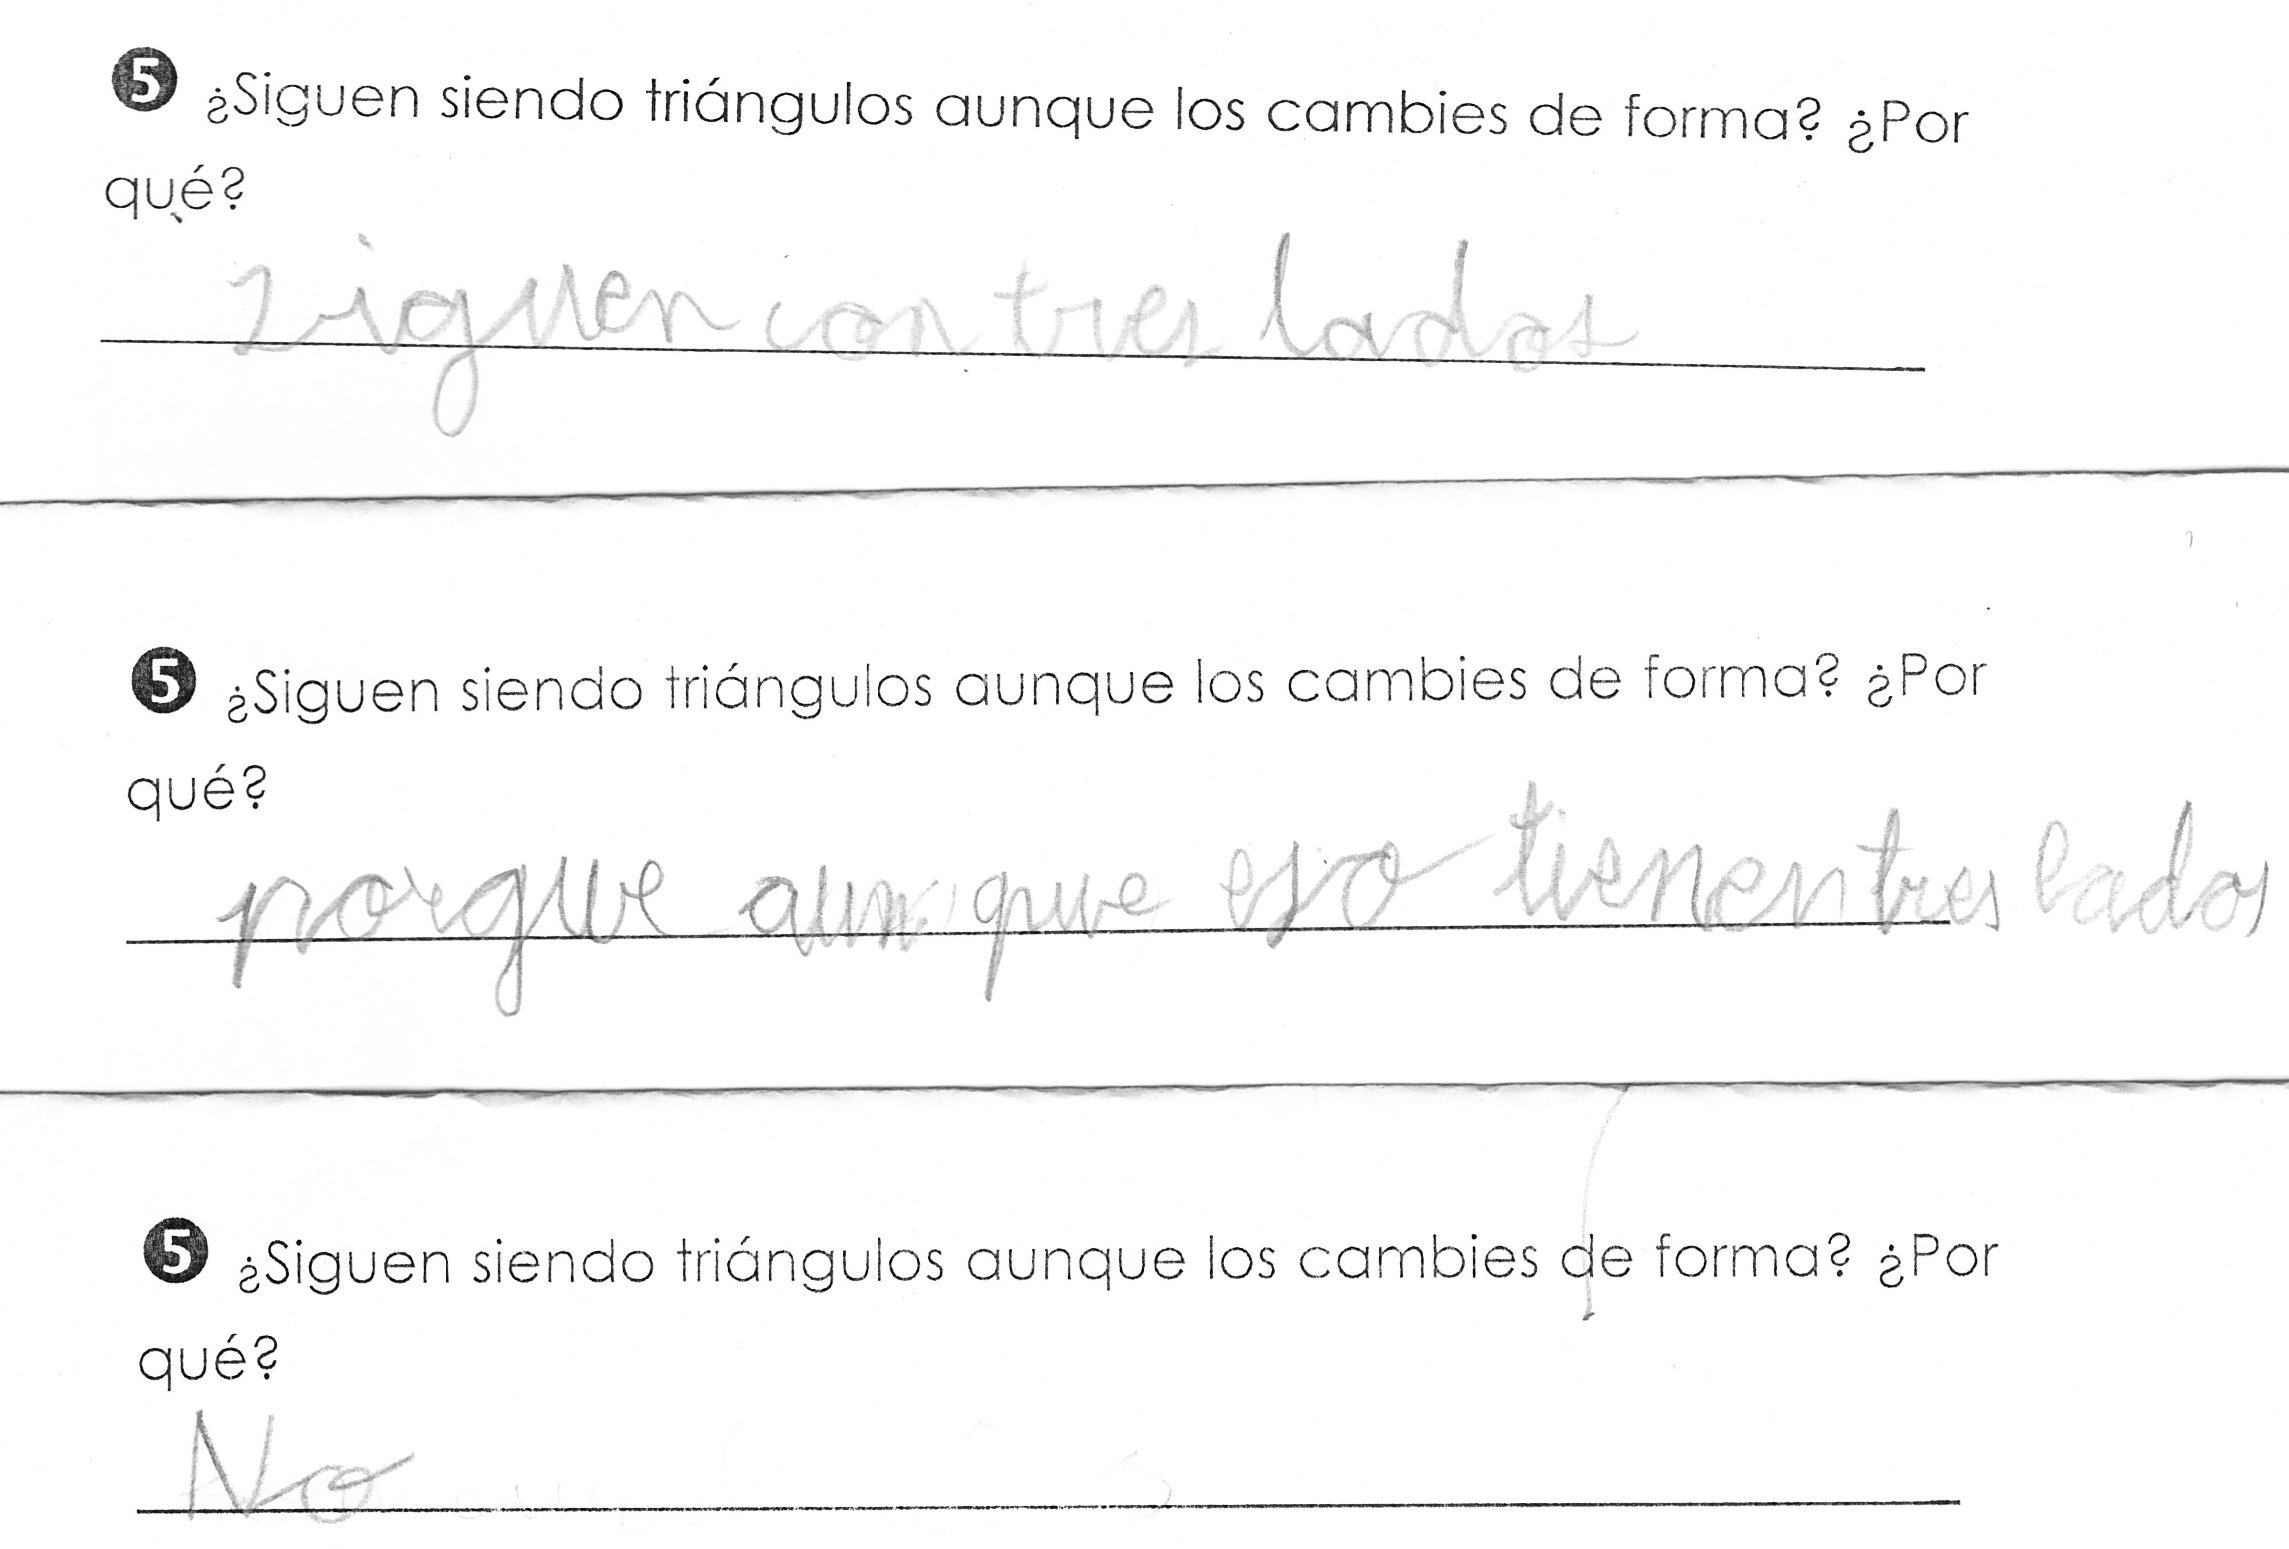 5 ¿Siguen siendo triángulos aunque los cambies de forma? ¿Por
qué?
siguen con tres lados
5 ¿Siguen siendo triángulos aunque los cambies de forma? ¿Por
qué?
porque aunque eso tienen tres lados
5 ¿Siguen siendo triángulos aunque los cambies de forma? ¿Por
qué?
No